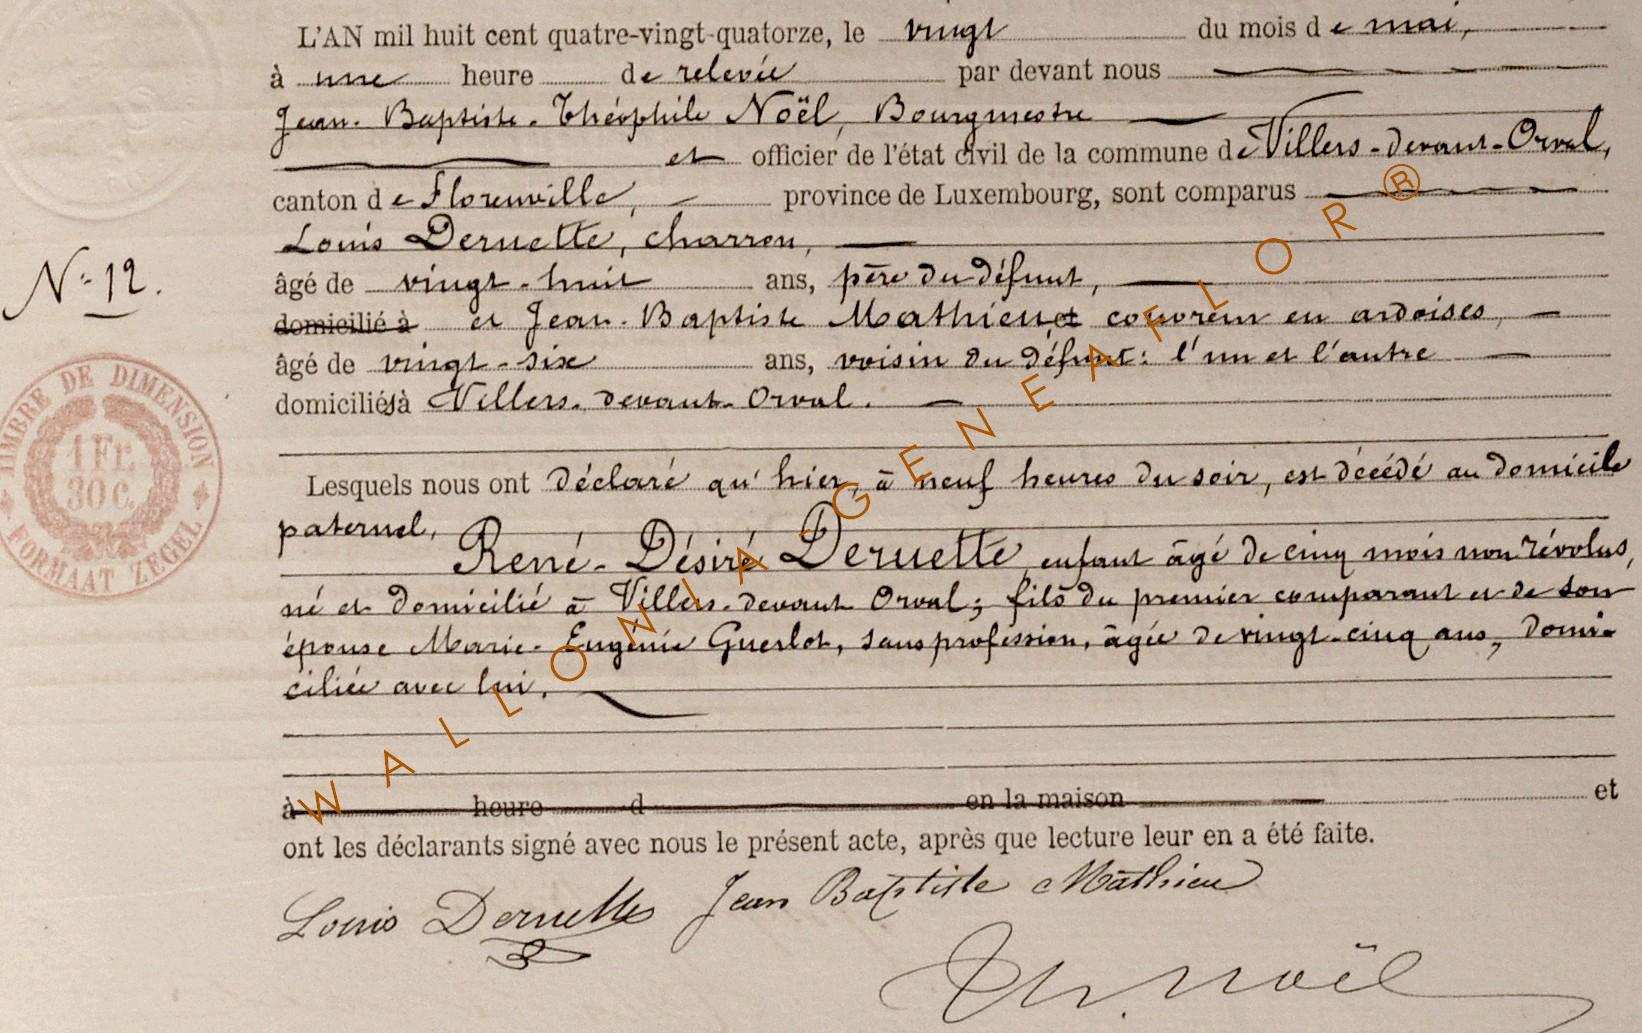 L'AN mil huit cent quatre-vingt-quatorze, le vingt du mois de mai,
à une heure de relevée par devant nous
Jean-Baptiste-Théophile Noël, Bourgmestre
et officier de l'état civil de la commune de Villers-devant-Orval,
canton de Florenville, province de Luxembourg, sont comparus
Louis Deruette, charron,
N° 12.
âgé de vingt-huit ans, père du défunt,
domicilié à et Jean-Baptiste Mathieu et couvreur en ardoises,
âgé de vingt-six ans, voisin du défunt: l'un et l'autre
domiciliés à Villers-devant-Orval.
TIMBRE DE DIMENSION
1 Fr.
30 C.
FORMAAT ZEGEL
Lesquels nous ont déclaré qu'hier, à neuf heures du soir, est décédé au domicile
paternel,
René-Désiré Deruette, enfant âgé de cinq mois non révolus,
né et domicilié à Villers-devant Orval; fils du premier comparant et de son
épouse Marie-Eugénie Guerlot, sans profession, âgée de vingt-cinq ans, domi-
ciliée avec lui.
à heure d en la maison et
ont les déclarants signé avec nous le présent acte, après que lecture leur en a été faite.
Louis Deruette Jean Baptiste Mathieu
Th. Noël
WALLONIA-GENEAFLOR®